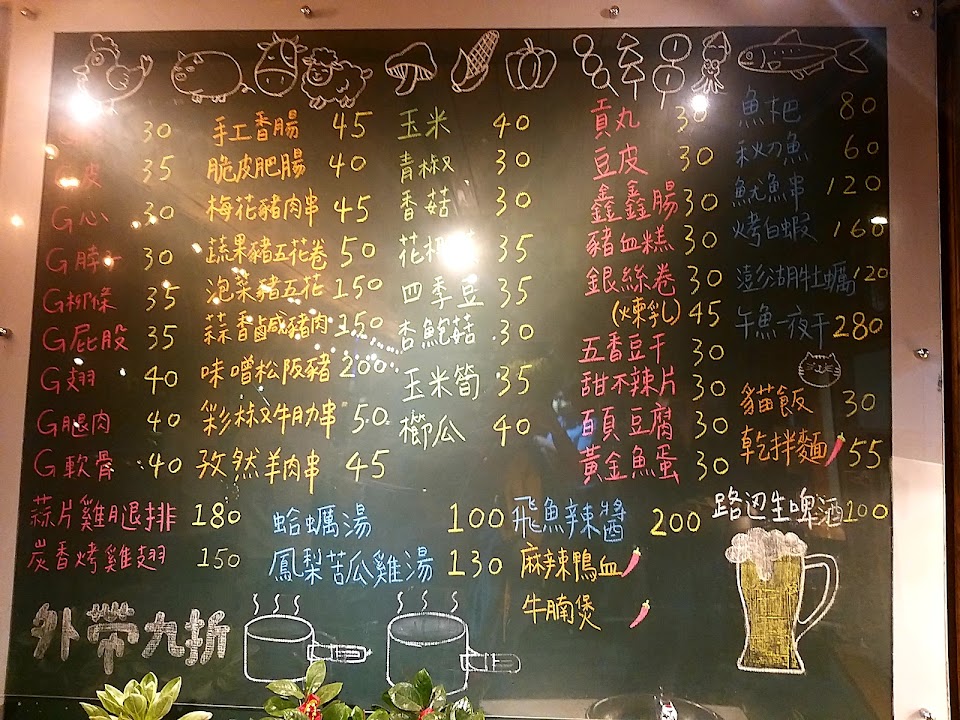 30
皮 35
G心 30
G脖子 30
G柳條 35
G屁股 35
G翅 40
G腿肉 40
G軟骨 40
蒜片雞腿排 180
炭香烤雞翅 150
外帶九折
手工香腸 45
脆皮肥腸 40
梅花豬肉串 45
蔬果豬五花卷 50
泡菜豬五花 150
蒜香鹹豬肉 150
味噌松阪豬 200
彩椒牛肋串 50
孜然羊肉串 45
蛤蠣湯 100
鳳梨苦瓜雞湯 130
玉米 40
青椒 30
香菇 30
花椰 35
四季豆 35
杏鮑菇 30
玉米筍 35
櫛瓜 40
貢丸 30
豆皮 30
鑫鑫腸 30
豬血糕 30
銀絲卷 30
(煉乳) 45
五香豆干 30
甜不辣片 30
百頁豆腐 30
黃金魚蛋 30
飛魚辣醬 200
麻辣鴨血
牛腩煲
魚杷 80
秋刀魚 60
魷魚串 120
烤白蝦 160
澎湖牡蠣 120
午魚一夜干 280
貓飯 30
乾拌麵 55
路边生啤酒 100